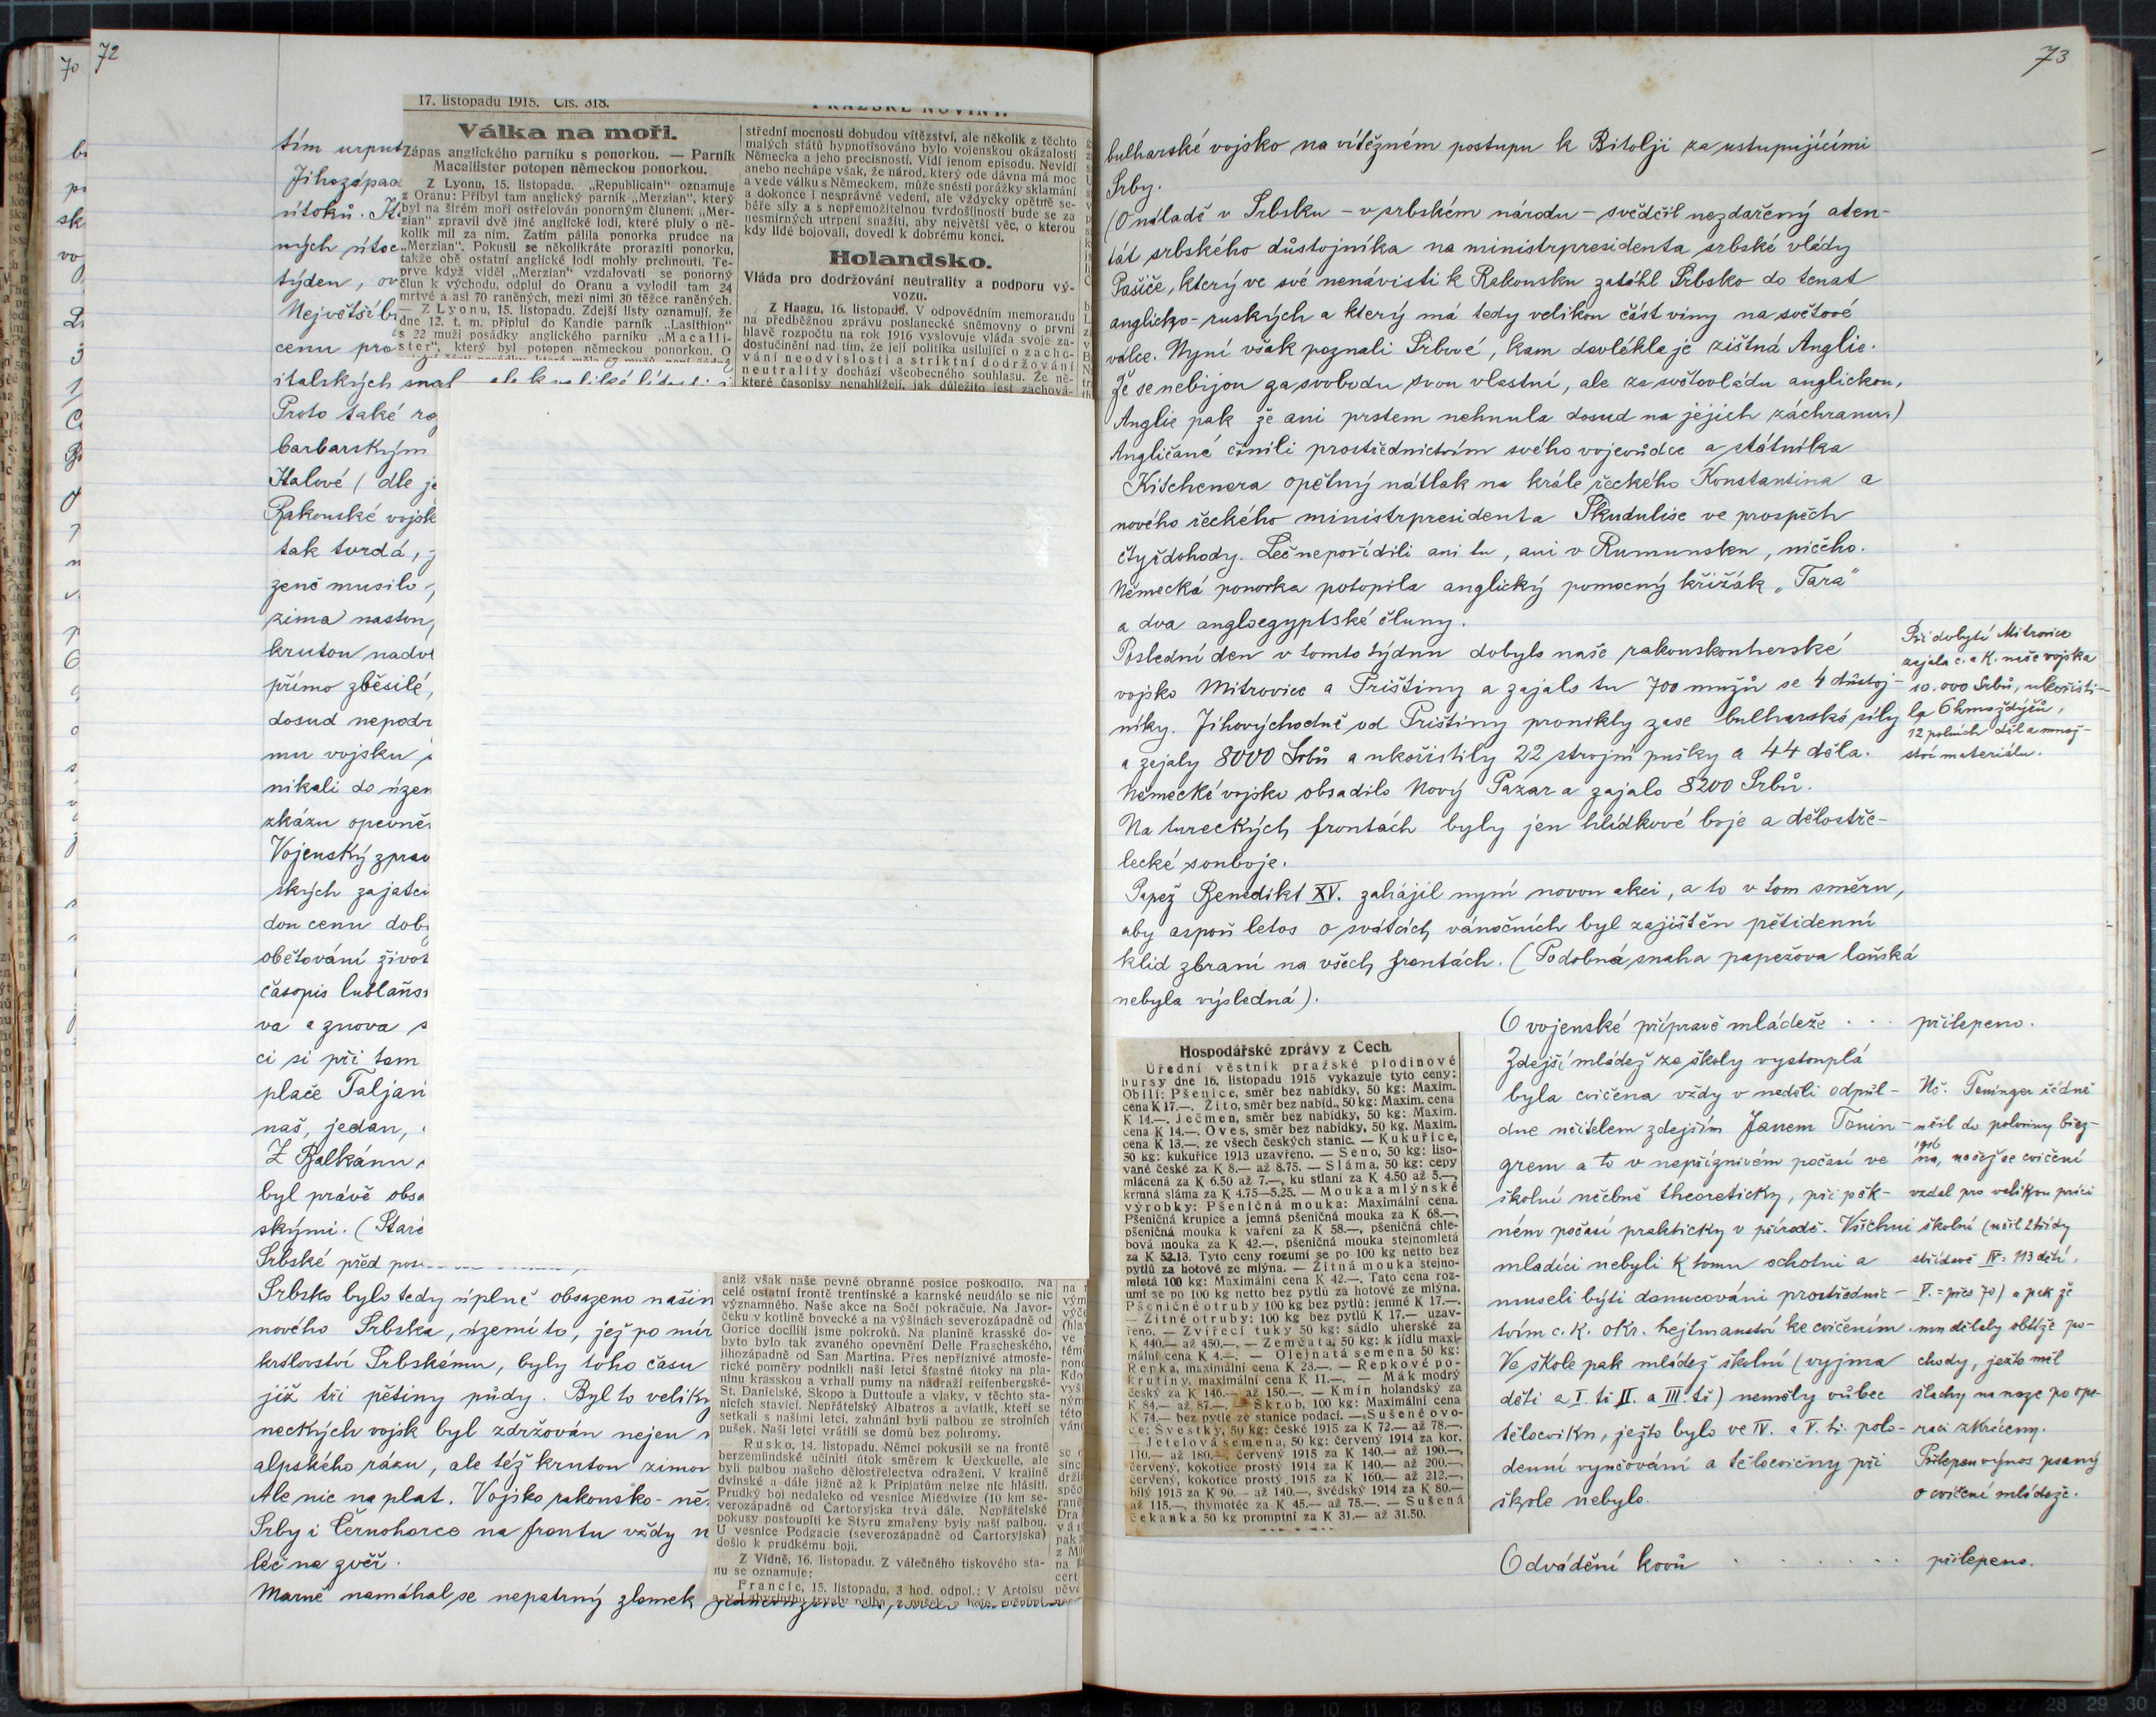 72
tím urput
Jihozápad
útoků. It
ných útoc
týden, ov
Největší bi
cenu pro
italských
Proto také ro
barbarským
Italové ( dle je
Rakouské vojsk
tak tvrdá, j
ženě musilo
zima nastou
krutou nadvl
přímo zběsilé,
dosud nepodr
mu vojsku
nikali do územ
zkázu opevně
Vojenský zprav
ských zajatci
dou cenu dob
obětování život
časopis lublaňs
va a znova s
ci si při tom
pláče Taljan
naš, jedan,
Z Balkánu
byl právě obsa
skými. ( Staré
Srbské před pos
Srbsko bylo tedy úplně obsazeno našim
nového Srbska, území to, jež po mír
království Srbskému, byly toho času
již tři pětiny půdy. Byl to veliký
neckých vojsk byl zdržován nejen
alpského rázu, ale též krutou zimou
Ale nic naplat. Vojsko rakousko-ně
Srby i Černohorce na frontu vždy n
léč na zvěř.
Marně namáhal se nepatrný zlomek
17. listopadu 1915. Čís. 318.
PRAŽSKÉ NOVINY.
Válka na moři.
Zápas anglického parníku s ponorkou. — Parník
Macallister potopen německou ponorkou.
Z Lyonu, 15. listopadu. „Republicain“ oznamuje
z Oranu: Přibyl tam anglický parník „Merzian“, který
byl na širém moři ostřelován ponorným člunem. „Mer-
zian“ zpravil dvě jiné anglické lodi, které pluly o ně-
kolik mil za ním. Zatím pálila ponorka prudce na
„Merzian“. Pokusil se několikráte proraziti ponorku,
takže obě ostatní anglické lodi mohly prchnouti. Te-
prve když viděl „Merzian“ vzdalovati se ponorný
člun k východu, odplul do Oranu a vylodil tam 24
mrtvé a asi 70 raněných, mezi nimi 30 těžce raněných.
— Z Lyonu, 15. listopadu. Zdejší listy oznamují, že
dne 12. t. m. připlul do Kandie parník „Lasithion“
s 22 muži posádky anglického parníku „Macalli-
ster“, který byl potopen německou ponorkou. O
střední mocnosti dobudou vítězství, ale několik z těchto
malých států hypnotisováno bylo vojenskou okázalostí
Německa a jeho precisností. Vidí jenom episodu. Nevidí
anebo nechápe však, že národ, který ode dávna má moc
a vede válku s Německem, může snésti porážky sklamání
a dokonce i nesprávné vedení, ale vždycky opětně se-
béře síly a s nepřemožitelnou tvrdošíjností bude se za
nesmírných utrpení snažiti, aby největší věc, o kterou
kdy lidé bojovali, dovedl k dobrému konci.
Holandsko.
Vláda pro dodržování neutrality a podporu vý-
vozu.
Z Haagu, 16. listopadu. V odpovědním memorandu
na předběžnou zprávu poslanecké sněmovny o první
hlavě rozpočtu na rok 1916 vyslovuje vláda svoje za-
dostučinění nad tím, že její politika usilující o zacho-
vání neodvislosti a striktní dodržování
neutrality dochází všeobecného souhlasu. Že ně-
které časopisy nenahlížejí, jak důležito jest zachová-
aniž však naše pevné obranné posice poškodilo. Na
celé ostatní frontě trentinské a karnské neudálo se nic
významného. Naše akce na Soči pokračuje. Na Javor-
čeku v kotlině bovecké a na výšinách severozápadně od
Gorice docílili jsme pokroků. Na planině krasské do-
byto bylo tak zvaného opevnění Delle Frascheského,
jihozápadně od San Martina. Přes nepříznivé atmosfe-
rické poměry podnikli naši letci šťastné útoky na pla-
ninu krasskou a vrhali pumy na nádraží reifenbergské-
St. Danielské, Skopo a Duttoule a vlaky, v těchto sta-
nicích stavící. Nepřátelský Albatros a aviatik, kteří se
setkali s našimi letci, zahnáni byli palbou ze strojních
pušek. Naši letci vrátili se domů bez pohromy.
Rusko, 14. listopadu. Němci pokusili se na frontě
berzemündské učiniti útok směrem k Uexkuelle, ale
byli palbou našeho dělostřelectva odraženi. V krajině
dvinské a dále jižně až k Pripjatům nelze nic hlásiti.
Prudký boj nedaleko od vesnice Miedwize (10 km se-
verozápadně od Čartoryjska trvá dále. Nepřátelské
pokusy postoupiti ke Styru zmařeny byly naší palbou.
U vesnice Podgacie (severozápadně od Čartoryjska)
došlo k prudkému boji.
Z Vídně, 16. listopadu. Z válečného tiskového sta-
nu se oznamuje:
Francie, 15. listopadu, 3 hod. odpol.: V Artoisu
73
bulharské vojsko na vítězném postupu k Bitolji za ustupujícími
Srby.
(O náladě v Srbsku – v srbském národu – svědčil nezdařený aten-
tát srbského důstojníka na ministrpresidenta srbské vlády
Pašiče, který ve své nenávisti k Rakousku zatáhl Srbsko do tenat
anglicko-ruských a který má tedy velikou část viny na světové
válce. Nyní však poznali Srbové, kam dovlékla je zištná Anglie.
Že se nebijou za svobodu svou vlastní, ale za světovládu anglickou,
Anglie pak že ani prstem nehnula dosud na jejich záchranu.)
Angličané činili prostřednictvím svého vojevůdce a státníka
Kitchenera opětný nátlak na krále řeckého Konstantina a
nového řeckého ministrpresidenta Skudulise ve prospěch
čtyřdohody. Leč nepořídili ani tu, ani v Rumunsku, ničeho.
Německá ponorka potopila anglický pomocný křižák „Tara“
a dva angloegyptské čluny.
Poslední den v tomto týdnu dobylo naše rakouskouherské
vojsko Mitrovice a Prištiny a zajalo tu 700 mužů se 4 důstoj-
níky. Jihovýchodně od Prištiny pronikly zase bulharské síly
a zajaly 8000 Srbů a ukořistily 22 strojní pušky a 44 děla.
Německé vojsko obsadilo Nový Pazar a zajalo 8200 Srbů.
Na tureckých frontách byly jen hlídkové boje a dělostře-
lecké souboje.
Papež Benedikt XV. zahájil nyní novou akci, a to v tom směru,
aby aspoň letos o svátcích vánočních byl zajištěn pětidenní
klid zbraní na všech frontách. (Podobná snaha papežova loňská
nebyla výsledná).
Při dobytí Mitrovice
zajala c. a k. naše vojska
10.000 Srbů, ukořisti-
la 6 hmoždýřů,
12 polních děl a množ-
ství materiálu.
Hospodářské zprávy z Čech.
Úřední věstník pražské plodinové
bursy dne 16. listopadu 1915 vykazuje tyto ceny:
Obilí: Pšenice, směr bez nabídky, 50 kg: Maxim.
cena K 17.—. Žito, směr bez nabíd., 50 kg: Maxim. cena
K 14.—. Ječmen, směr bez nabídky, 50 kg: Maxim.
cena K 14.—. Oves, směr bez nabídky, 50 kg. Maxim.
cena K 13.—. ze všech českých stanic. — Kukuřice,
50 kg: kukuřice 1913 uzavřeno. — Seno, 50 kg: liso-
vané české za K 8.— až 8.75. — Sláma, 50 kg: cepy
mlácená za K 6.50 až 7.—, ku stlaní za K 4.50 až 5.—,
krmná sláma za K 4.75—5.25. — Mouka a mlýnské
výrobky: Pšeničná mouka: Maximální cena.
Pšeničná krupice a jemná pšeničná mouka za K 68.—,
pšeničná mouka k vaření za K 58.—, pšeničná chle-
bová mouka za K 42.—, pšeničná mouka stejnomletá
za K 52.13. Tyto ceny rozumí se po 100 kg netto bez
pytlů za hotové ze mlýna. — Žitná mouka stejno-
mletá 100 kg: Maximální cena K 42.—. Tato cena roz-
umí se po 100 kg netto bez pytlů za hotové ze mlýna.
Pšeničné otruby 100 kg bez pytlů: jemné K 17.—.
— Žitné otruby: 100 kg bez pytlů K 17.— uzav-
řeno. — Zvířecí tuky 50 kg: sádlo uherské za
K 440.— až 450.—. — Zemčata, 50 kg: k jídlu maxi-
mální cena K 4.—. — Olejnatá semena 50 kg:
Řepka, maximální cena K 23.—. — Řepkové po-
krutiny, maximální cena K 11.—. — Mák modrý
český za K 146.— až 150.—. — Kmín holandský za
K 84.— až 87.—. — Škrob, 100 kg: Maximální cena
K 74.— bez pytle ze stanice podací. — Sušené ovo-
ce: Švestky, 50 kg: české 1915 za K 72.— až 78.—.
— Jetelová semena, 50 kg: červený 1914 za kor.
110.— až 180.—, červený 1915 za K 140.— až 190.—,
červený, kokotice prostý 1914 za K 140.— až 200.—,
červený, kokotice prostý 1915 za K 160.— až 212.—,
bílý 1915 za K 90.— až 140.—, švédský 1914 za K 80.—
až 115.—, thymotée za K 45.— až 75.—. — Sušená
čekanka 50 kg promptní za K 31.— až 31.50.
O vojenské přípravě mládeže . . . přilepeno.
Zdejší mládež ze školy vystouplá
byla cvičena vždy v neděli odpůl-
dne učitelem zdejším Janem Tenin-
grem a to v nepříznivém počasí ve
školní učebně theoreticky, při pěk-
ném počasí prakticky v přírodě. Všichni
mladíci nebyli k tomu ochotni a
museli býti donucováni prostřednic-
tvím c. k. okr. hejtmanství ke cvičením.
Ve škole pak mládež školní (vyjma
děti z I. tř. II. a III. tř.) neměly vůbec
tělocviku, ježto bylo ve IV. a V. tř. polo-
denní vyučování a tělocvičny při
škole nebylo.
Uč. Teninger řádně
učil do poloviny břez-
1916
na, načež se cvičení
vzdal pro velikou práci
školní (učil 2 třídy
střídavě IV = 113 dětí,
V. = přes 70) a pak že
mu dělaly obtíže po-
chody, ježto měl
šlachy na noze po ope-
raci zkráceny.
Přilepen výnos psaný
o cvičení mládeže.
Odvádění kovů . . . . . . přilepeno.